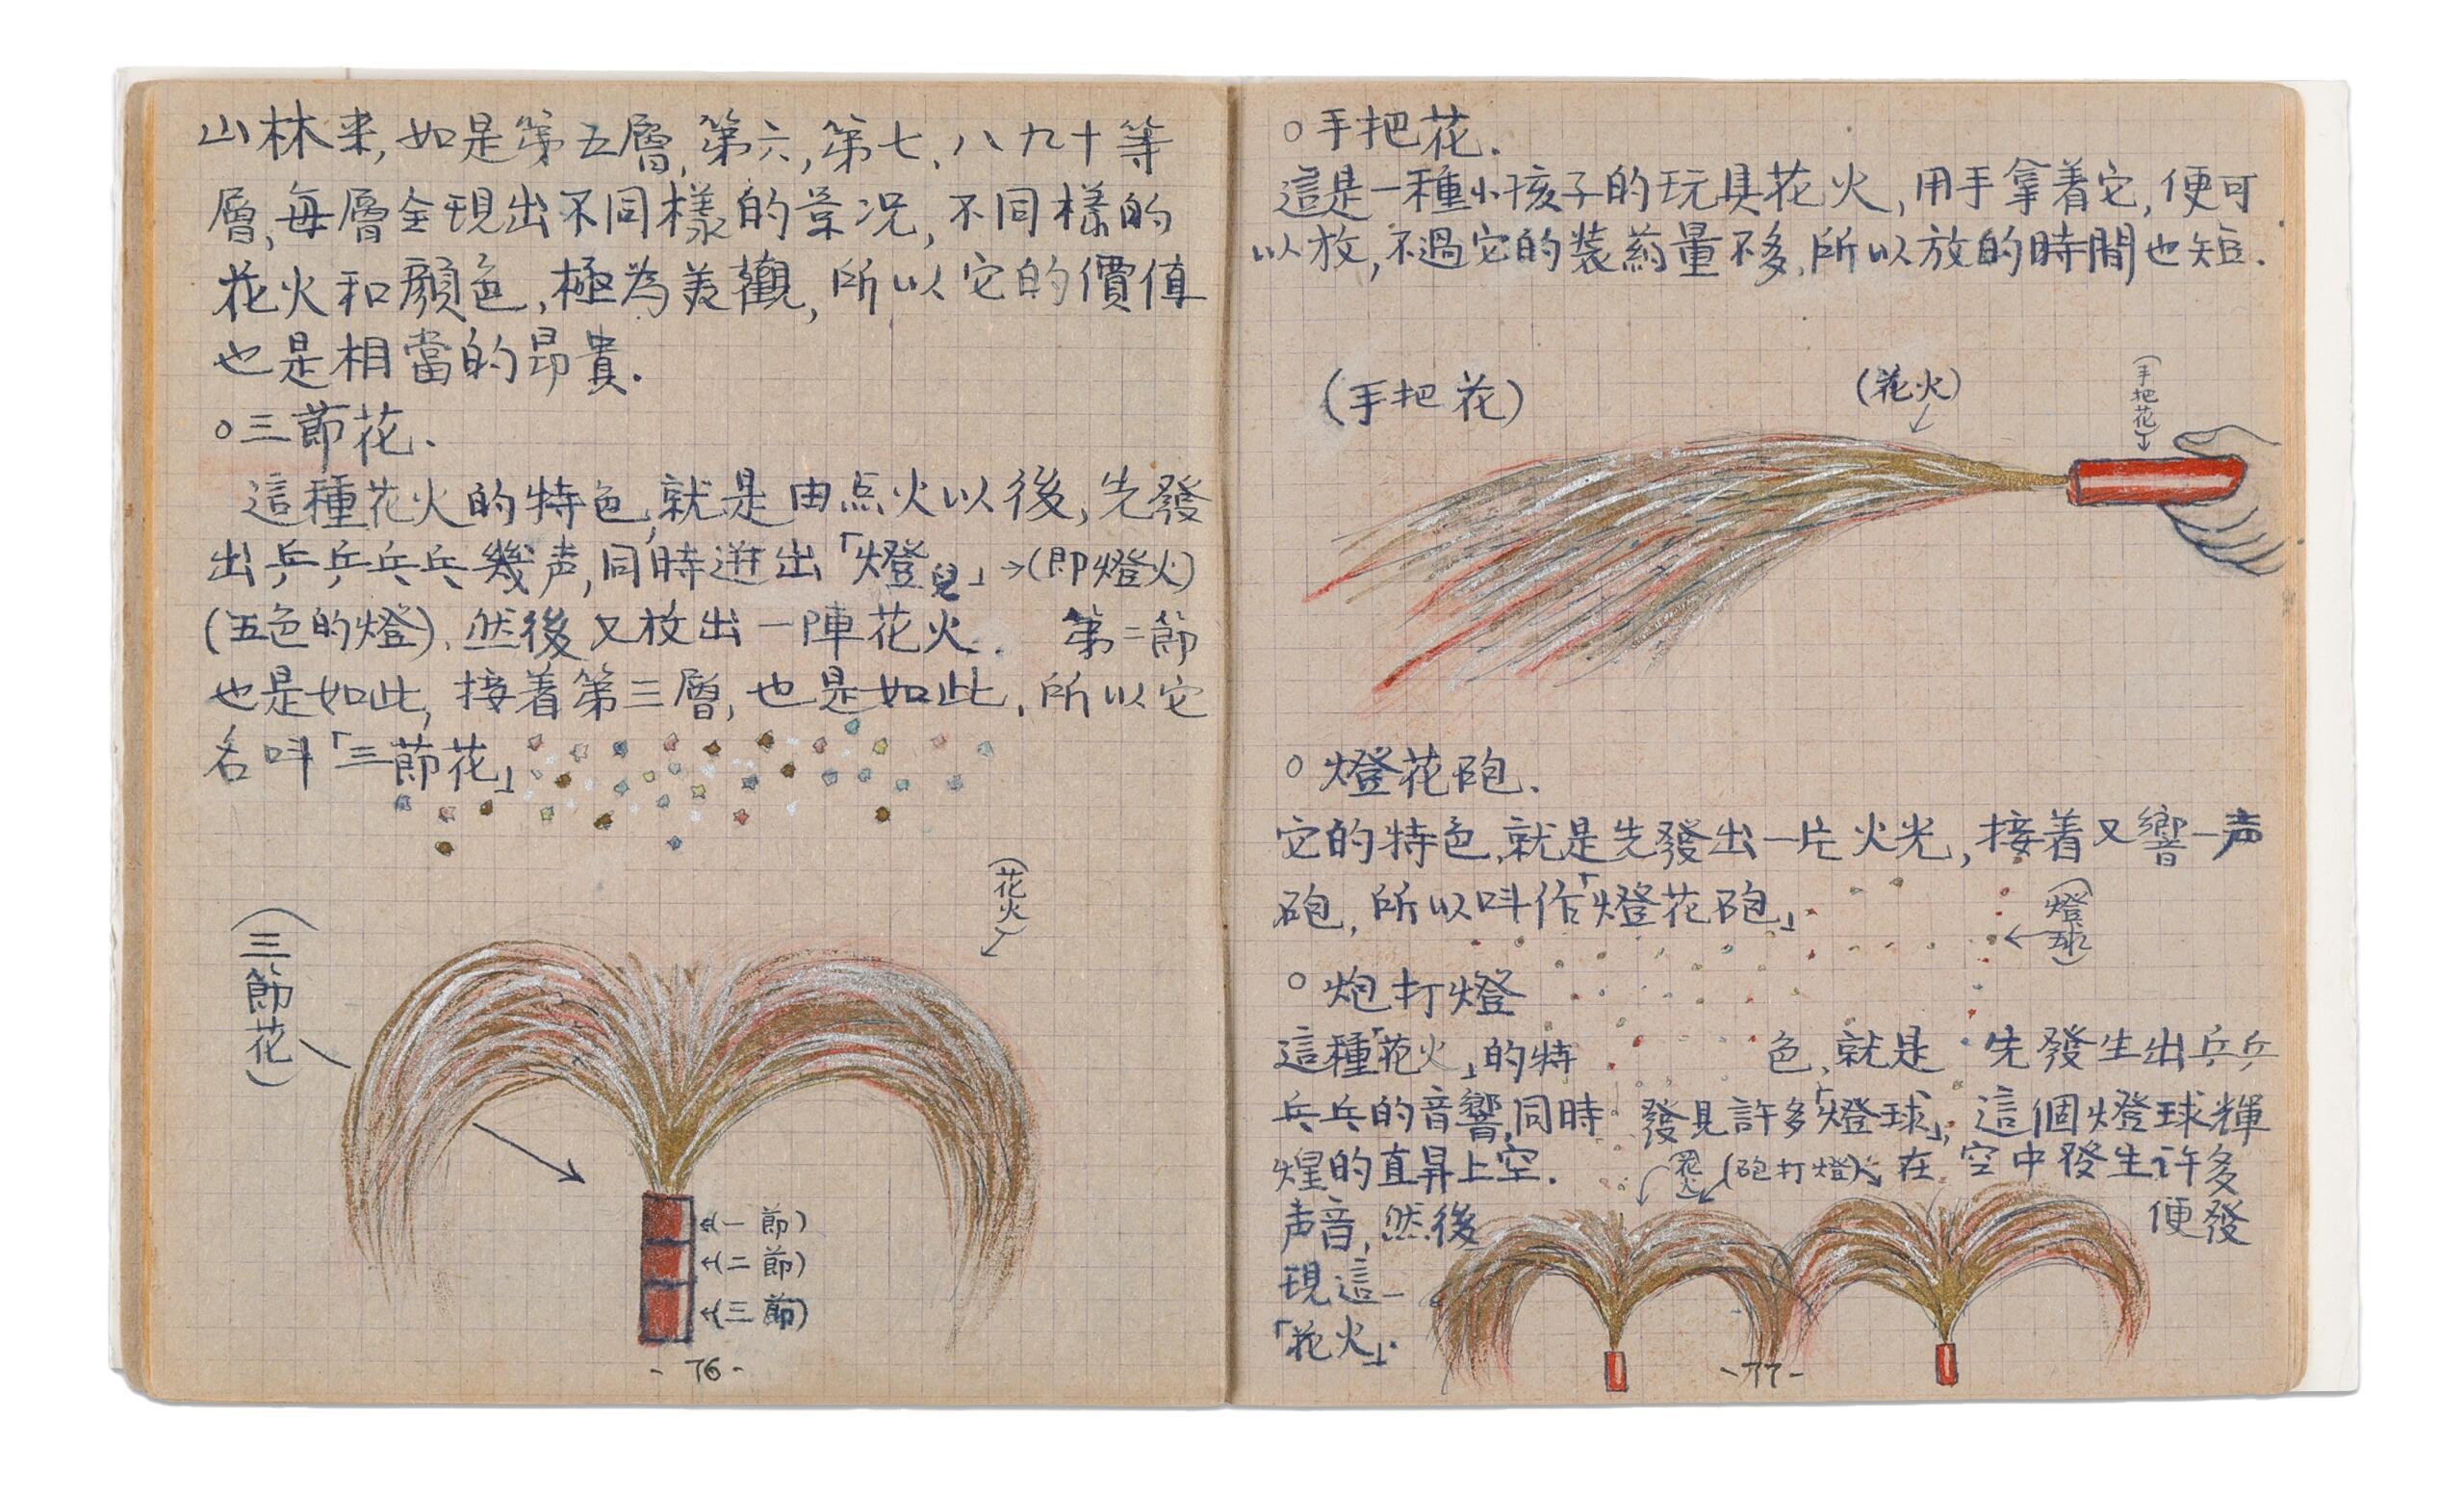 山林来,如是第五層,第六,第七,八九十等
層,每層全現出不同樣的景况,不同樣的
花火和顏色,極為美觀,所以它的價值
也是相當的昂貴.
○三節花.
這種花火的特色,就是由点火以後,先發
出乒乒乓乓幾声,同時迸出「燈兒」→(即燈火)
(五色的燈),然後又放出一陣花火. 第二節
也是如此,接着第三層,也是如此,所以它
名叫「三節花」
(花火)
(三節花)
(一節)
(二節)
(三節)
-76-
○手把花.
這是一種小孩子的玩具花火,用手拿着它,便可
以放,不過它的装葯量不多,所以放的時間也短.
(手把花)
(花火)
(手把花)
○燈花砲.
它的特色,就是先發出一片火光,接着又響一声
砲,所以叫作「燈花砲」
(燈球)
○炮打燈
這種「花火」的特色,就是先發生出乒乒
乓乓的音響,同時發見許多「燈球」,這個燈球輝
煌的直昇上空. 在空中發生许多
(花火)
(砲打燈)
声音,然後便發
現這一
「花火」.
-77-